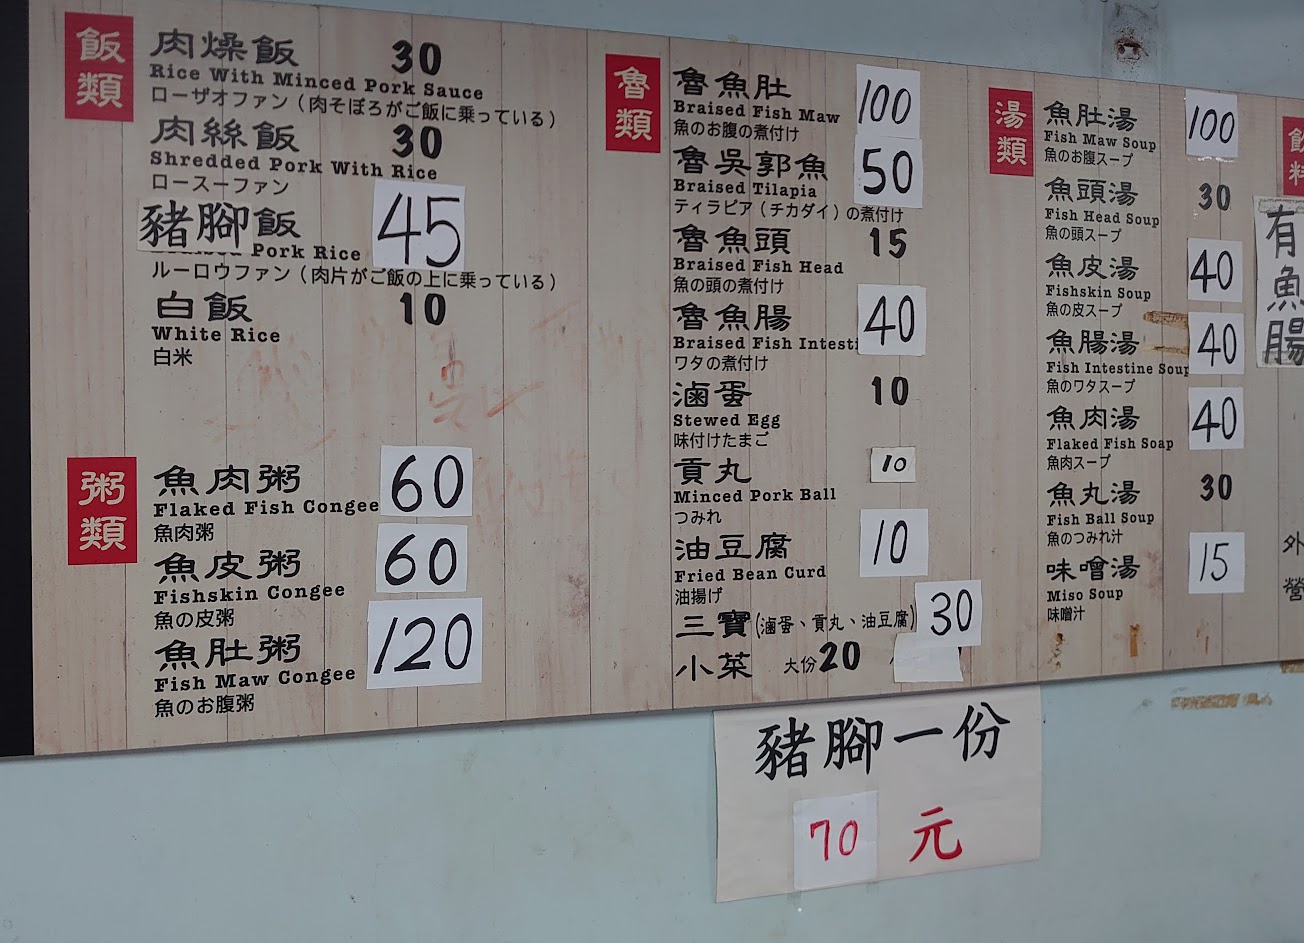 飯類
肉燥飯 30
Rice With Minced Pork Sauce
ローザオファン（肉そぼろがご飯に乗っている）
肉絲飯 30
Shredded Pork With Rice
ロースーファン
豬腳飯 45
Pork Rice
ルーロウファン（肉片がご飯の上に乗っている）
白飯 10
White Rice
白米
粥類
魚肉粥 60
Flaked Fish Congee
魚肉粥
魚皮粥 60
Fishskin Congee
魚の皮粥
魚肚粥 120
Fish Maw Congee
魚のお腹粥
魯類
魯魚肚 100
Braised Fish Maw
魚のお腹の煮付け
魯吳郭魚 50
Braised Tilapia
ティラピア（チカダイ）の煮付け
魯魚頭 15
Braised Fish Head
魚の頭の煮付け
魯魚腸 40
Braised Fish Intesti
ワタの煮付け
滷蛋 10
Stewed Egg
味付けたまご
貢丸 10
Minced Pork Ball
つみれ
油豆腐 10
Fried Bean Curd
油揚げ
三寶(滷蛋、貢丸、油豆腐) 30
小菜 大份20
湯類
魚肚湯 100
Fish Maw Soup
魚のお腹スープ
魚頭湯 30
Fish Head Soup
魚の頭スープ
魚皮湯 40
Fishskin Soup
魚の皮スープ
魚腸湯 40
Fish Intestine Soup
魚のワタスープ
魚肉湯 40
Flaked Fish Soap
魚肉スープ
魚丸湯 30
Fish Ball Soup
魚のつみれ汁
味噌湯 15
Miso Soup
味噌汁
有魚腸
外
營
豬腳一份
70 元